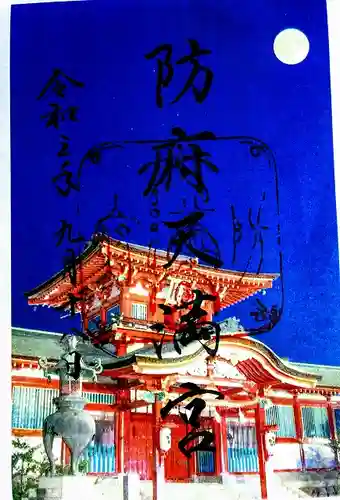 防府天満宮
令和三年九月十日